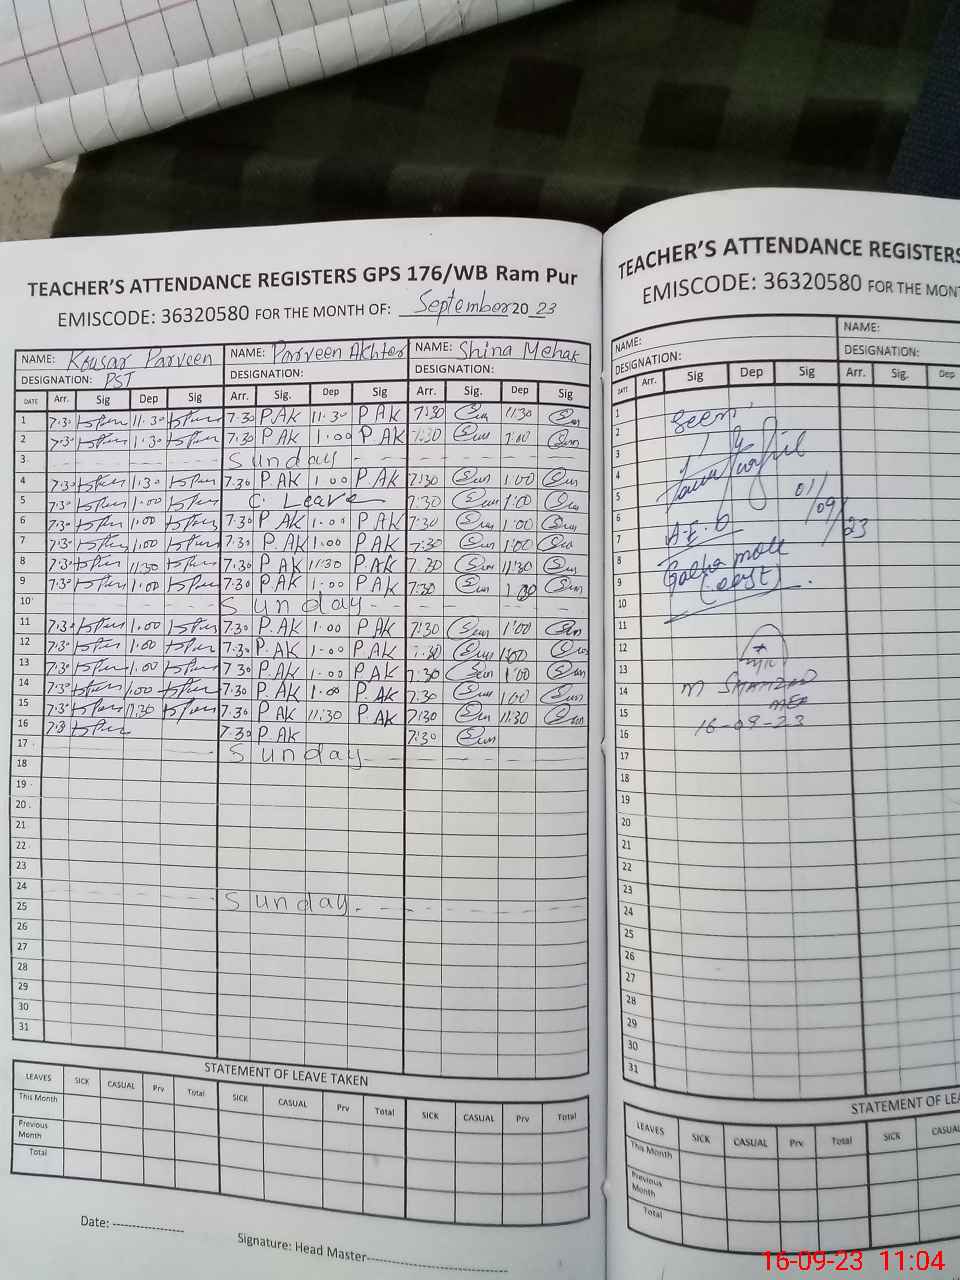 TEACHER'S ATTENDANCE REGISTERS GPS 176/WB Ram Pur
EMISCODE: 36320580 FOR THE MONTH OF: September 2023
NAME: Kousar Parveen NAME: Parveen Akhter NAME: Shina Mehak
DESIGNATION: PST DESIGNATION: DESIGNATION:
DATE Arr. Sig Dep Sig Arr. Sig. Dep Sig Arr. Sig. Dep Sig
1 7:30 11:30 7.30 P.AK 11:30 P AK 7:30 11:30
2 7:30 1:30 7.30 P.AK 1.00 P AK 7:30 1:00
3 Sunday
4 7:30 1:30 7.30 P.AK 1.00 P.AK 7:30 1:00
5 7:30 1:00 C. Leave 7:30 1:00
6 7:30 1:00 7.30 P. AK 1.00 P. AK 7:30 1:00
7 7:30 1:00 7.30 P. AK 1.00 P. AK 7:30 1:00
8 7:30 11:30 7.30 P. AK 11:30 P AK 7:30 11:30
9 7:30 1:00 7.30 P. AK 1.00 P AK 7:30 1:00
10 Sunday
11 7:30 1.00 7.30 P. AK 1.00 P. AK 7:30 1:00
12 7:30 1.00 7.30 P. AK 1.00 P. AK 7:30 1:00
13 7:30 1.00 7.30 P. AK 1.00 P. AK 7:30 1:00
14 7:30 1.00 7.30 P. AK 1.00 P. AK 7:30 1:00
15 7:30 11:30 7.30 P. AK 11:30 P AK 7:30 11:30
16 7:30 7.30 P. AK 7:30
17 Sunday
18
19
20
21
22
23
24 Sunday
25
26
27
28
29
30
31
STATEMENT OF LEAVE TAKEN
LEAVES SICK CASUAL Prv Total SICK CASUAL Prv Total SICK CASUAL Prv Total
This Month
Previous Month
Total
Date:
Signature: Head Master
TEACHER'S ATTENDANCE REGISTERS
EMISCODE: 36320580 FOR THE MON
NAME: NAME:
DESIGNATION: DESIGNATION:
DATE Arr. Sig Dep Sig Arr. Sig. Dep
1
2
3
4
5
6
7
8
9
10
11
12
13
14
15
16
17
18
19
20
21
22
23
24
25
26
27
28
29
30
31
Seen
01/09/23
A.E.O
M SHAHZAD
MEA
16-09-23
STATEMENT OF LEA
LEAVES SICK CASUAL Prv Total SICK CASUAL
This Month
Previous Month
Total
16-09-23 11:04